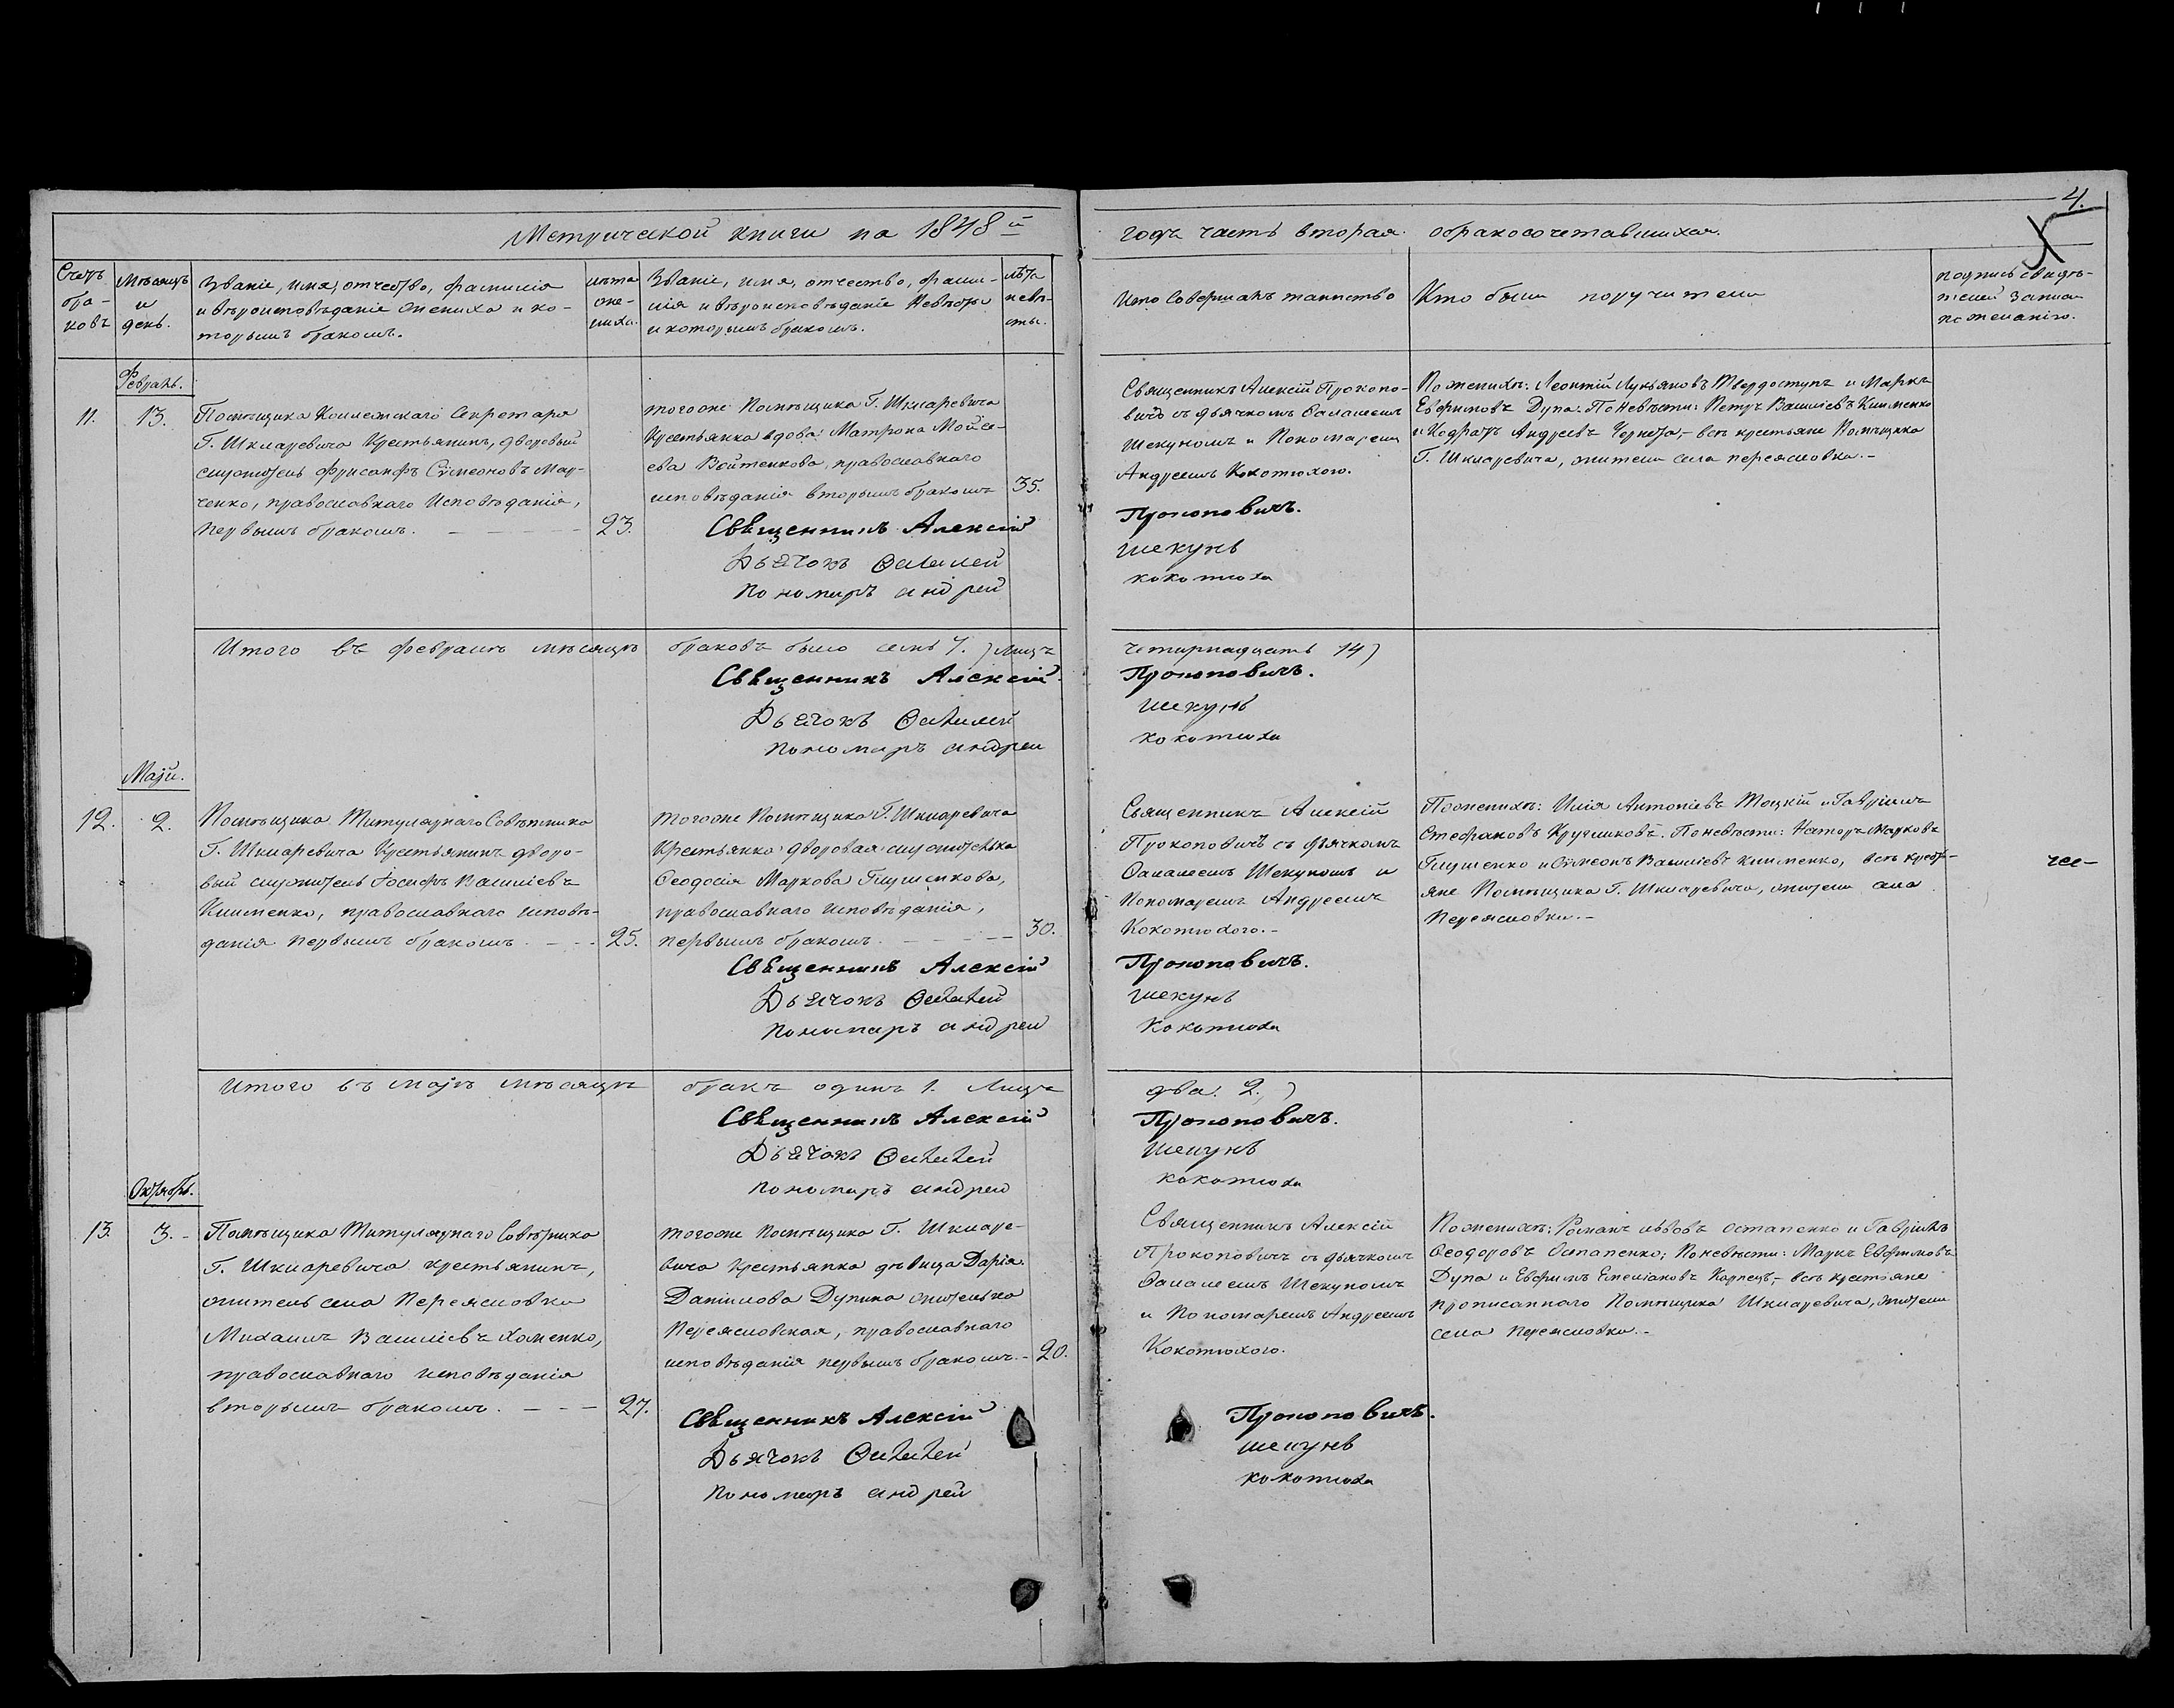 4.
Метрической книги на 1848й годъ часть вторая о бракосочетавшихся.
Счетъ браковъ
Мѣсяцъ и день.
Званіе, имя, отчество, фамилія
и вѣроисповѣданіе жениха и ко-
торымъ бракомъ.
лѣта
же-
ниха.
Званіе, имя, отчество, фами-
лія и вѣроисповѣданіе Невѣсты
и которымъ бракомъ.
лѣта
невѣ-
сты.
Кто совершалъ таинство
Кто были поручители
подпись свидѣ-
телей записи
по желанію.
Февраль.
11.
13.
Помѣщика Коллежскаго Секретаря
Г. Шкляревича Крестьянинъ, дворовый
служитель Фрисанфъ Сѵмеоновъ Мар-
ченко, православнаго Исповѣданія,
первымъ бракомъ.
23.
тогоже Помѣщика Г. Шкляревича
Крестьянка вдова Матрона Мойсе-
ева Войтенкова, православнаго
исповѣданія вторымъ бракомъ
35.
Священникъ Алексій
Дьячокъ Фалалей
Пономаръ андрей
Священникъ Алексій Прокопо-
вичъ съ дьячкомъ Фалалеемъ
Шекуномъ и Пономаремъ
Андреемъ Кокотюхою.
Прокоповичъ.
шекунъ
кокотюха
По женихѣ: Леонтій Лукьяновъ Твердоступъ и Маркъ
Евфимовъ Дупа. По Невѣсти: Петръ Василіевъ Клименко
и Кодратъ Андреевъ Чернота,- всѣ крестьяне Помѣщика
Г. Шкляревича, жители села переясловки.-
Итого въ февралѣ мѣсяцѣ браковъ было семь 7.) лицъ четырнадцать 14)
Священникъ Алексій Прокоповичъ.
Дьячокъ Фалалей шекунъ
Пономаръ андреи кокотюха
Маій.
12.
2.
Помѣщика Титулярнаго Совѣтника
Г. Шкляревича Крестьянинъ дворо-
вый служитель Іосифъ Василіевъ
Клименко, православнаго исповѣ-
данія первымъ бракомъ.
25.
тогоже Помѣщика Г. Шкляревича
Крестьянка дворовая служителька
Ѳеодосія Маркова Глушенкова,
православнаго исповѣданія,
первымъ бракомъ.
30.
Священникъ Алексій
Дьячокъ Фалалей
Пономаръ андреи
Священникъ Алексій
Прокоповичъ съ дьячкомъ
Фалалеемъ Шекуномъ и
Пономаремъ Андреемъ
Кокотюхою.-
Прокоповичъ.
шекунъ
Кокотюха
По женихѣ: Илія Антоніевъ Тоцкій и Гавріилъ
Стефановъ Кругликовъ. По невѣсти: Маркова
Глушенко и Сѵмеонъ Василіевъ Клименко, всѣ крест-
яне Помѣщика Г. Шкляревича, жители села
Переясловки.-
Итого въ маіѣ мѣсяцѣ бракъ одинъ 1. Лицъ два. 2.)
Священникъ Алексій Прокоповичъ.
Дьячокъ Фалалей шекунъ
пономаръ андреи кокотюха
Октябрь.
13.
3.-
Помѣщика Титулярнаго Совѣтника
Г. Шкляревича крестьянинъ,
житель села Переясловки
Михаилъ Василіевъ Хоменко,
православнаго исповѣданія
вторымъ бракомъ.
27.
тогоже Помѣщика Г. Шкляре-
вича крестьянка дѣвица Дарія
Даніилова Дупина жителька
Переясловская, православнаго
исповѣданія первымъ бракомъ.-
20.
Священникъ Алексій
Дьячокъ Фалалей
Пономаръ андрей
Священникъ Алексій
Прокоповичъ съ дьячкомъ
Фалалеемъ Шекуномъ
и Пономаремъ Андреемъ
Кокотюхою.
Прокоповичъ.
шекунъ
кокотюха
По женихѣ: Романъ Львовъ Остапенко и Гавріилъ
Ѳеодоровъ Остапенко; По невѣсти: Маркъ Евфимовъ
Дупа и Евфимъ Емеліановъ Карпецъ,- всѣ крестьяне
прописаннаго Помѣщика Шкляревича, жители
села Переясловки.-